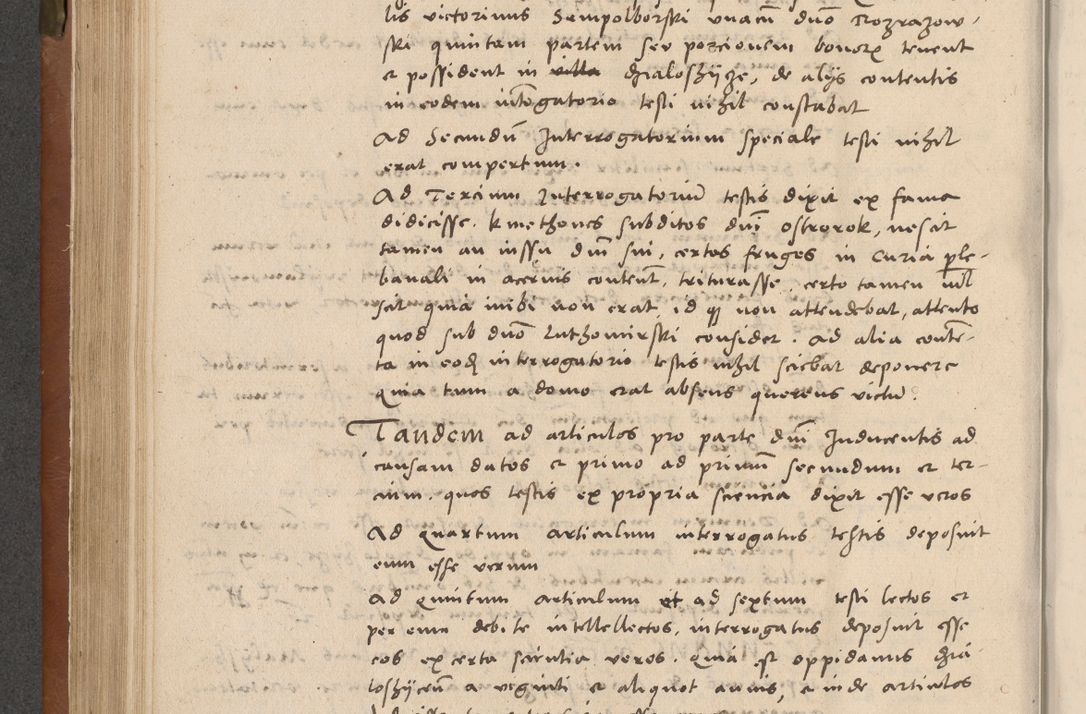 lis victorinus Sempolborski vnacū dnō Rozrazow-
ski quintam partem seo porcionem bonorꝝ tenent
et possident in villa Dzialoshycze, de alijs contentis
in eodem intōgatorio testi nihil constabat
Ad Secundū Interrogatorium speciale testi nihil
erat compertum.
Ad Tercium Interrogatoriū testis dixit ex fama
didicisse. kmethones subditos dnī ostrorok, nescit
tamen an iussu dnī sui, certos fruges in curia ple-
banali in aceruis content. triturasse. certo tamen nil
scit quia inibi non erat, id qz non attendebat, attento
quod sub dnō Luthomirski consider. Ad alia conte-
ta in eod interrogatorio testis nihil sciebat deponere
quia tum a domo erat absens querens victū.
Tandem ad articulos pro parte dnī Inducentis ad
causam datos et primo ad primū secundum et ter-
cium. quos testis ex propria sciencia dixit esse veros
Ad quartum articulum interrogatus testis deposuit
eum esse verum
Ad quintum articulum et ad sextum testi lectos et
per eum debite intellellectos, interrogatus deposuit esse
eos ex certa scientia veros. quia est oppidanus Dzia-
loshycen̄ a viginti et aliquot annis, et inde articulos